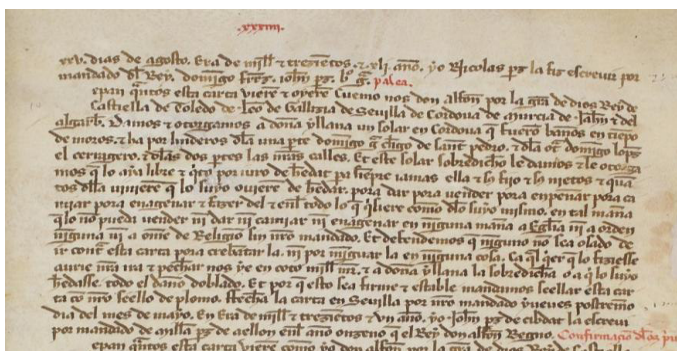 .xxxiiii.
xxv. dias de agosto. Era de mill & trezietos. & .xli. ano. yo Nicolas pz la fiz escreuir por
mandado dl Rey. domigo frrz. iohn pz. palea.
epan qntos esta carta viere & oyere Cuemo nos don alfon por la gra de dios Rey de
Castiella de Toledo de Leo de Gallizia de Seuilla de Cordoua de Murcia de Jahn & del
algarb. Damos & otorgamos a dona yllana un solar en Cordoua q fuero banos en tiepo
de moros. & ha por linderos dla una pte domigo cligo de sant pedro. & dla ot domigo lopz
el ceruigero. & dlas dos ptes las calles. Et este solar sobredicho le damos & le otorga
mos q lo aya libre & qto por iuro de hedat pa siepre iamas ella & sos fijos & sos nietos & qua
tos dlla viniere q lo suyo ouiere de hedar. pora dar pora vender pora enpenar pora ca
miar pora enagenar & fazer del & enl todo lo q qsiere como dlo suyo mismo. en tal mana
q lo no pueda vender ni dar ni camiar ni enagenar en niguna mana a Eglia ni a orden
niguna ni a ome de Religio sin nro mandado. Et defendemos q niguno no sea osado de
ir cont esta carta pora crebatar la. ni por miguar la en niguna cosa. Ca ql qer q lo fiziesse
aurie nra ira & pechar nos ye en coto mill mr. & a dona yllana la sobredicha o a q lo suyo
hedasse. todo el dano doblado. Et por q esto sea firme & estable mandamos seellar esta car
ta co nro seello de plomo. ffecha la carta en Seuilla por nro mandado yueues postremo
dia del mes de mayo. En Era de mill & trezietos & un ano. yo Johan pz de cibdat la escreui
por mandado de milla pz de aellon enl ano onzeno q el Rey don alfon Regno. Confirmacio
epan qntos esta carta viere como yo don alfon por la gra de dios Rey de